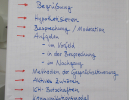 - Begrüßung
- Hypothetisieren
- Besprechung / Moderation
- Aufgaben
- im Vorfeld
- in der Besprechung
- im Nachgang
- Methoden der Gesprächssteuerung
- Aktives Zuhören
- ICH-Botschaften